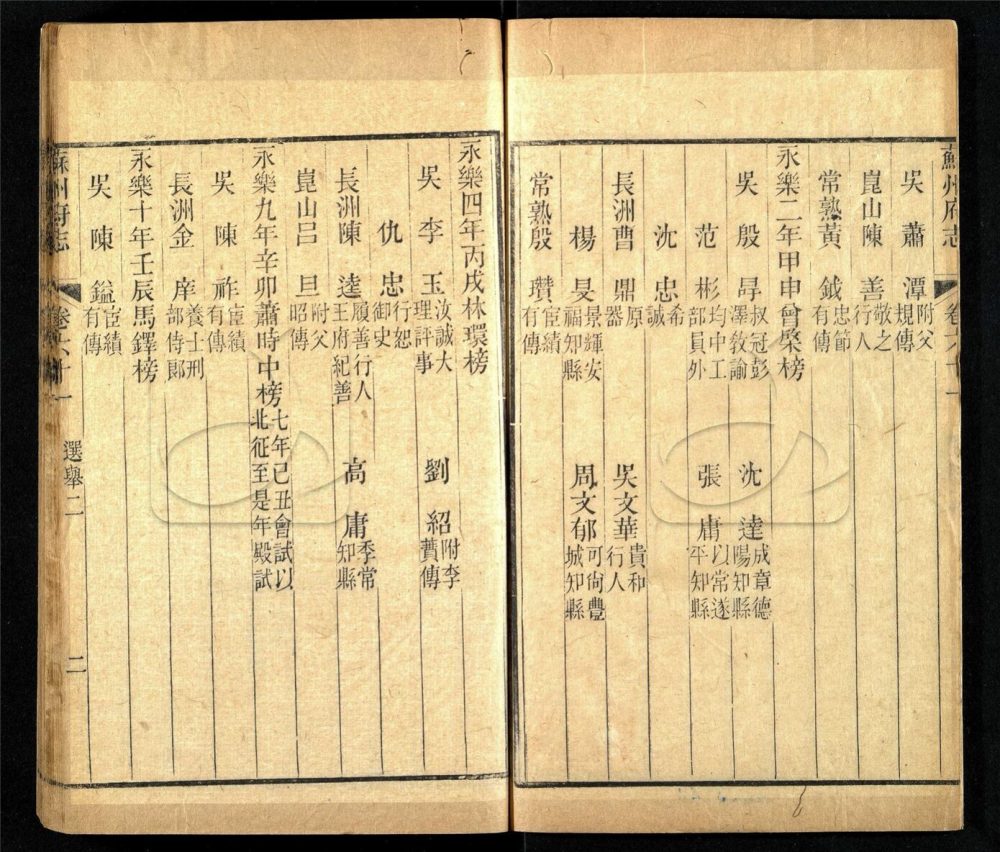 蘇州府志 卷六十一
吳 蕭潭 附父規傳
崑山陳善 敬之行人
常熟黃鉞 忠節有傳
永樂二年甲申曾棨榜
吳 殷昪 叔冠彭澤敎諭 沈達 成章德陽知縣
范彬 均中工部員外 張庸 以常遂平知縣
沈忠 希誠
長洲曹鼎 原器 吳文華 貴和行人
楊旻 景輝安福知縣 周文郁 可尙豐城知縣
常熟殷瓚 宦績有傳
永樂四年丙戌林環榜
吳 李玉 汝誠大理評事 劉紹 附李蕡傳
仇忠 行恕御史
長洲陳逵 履善行人王府紀善 高庸 季常知縣
崑山呂旦 附父昭傳
永樂九年辛卯蕭時中榜 七年己丑會試以北征至是年殿試
吳 陳祚 宦績有傳
長洲金庠 養士刑部侍郎
永樂十年壬辰馬鐸榜
吳 陳鎰 宦績有傳
蘇州府志 卷六十一 選舉二 二